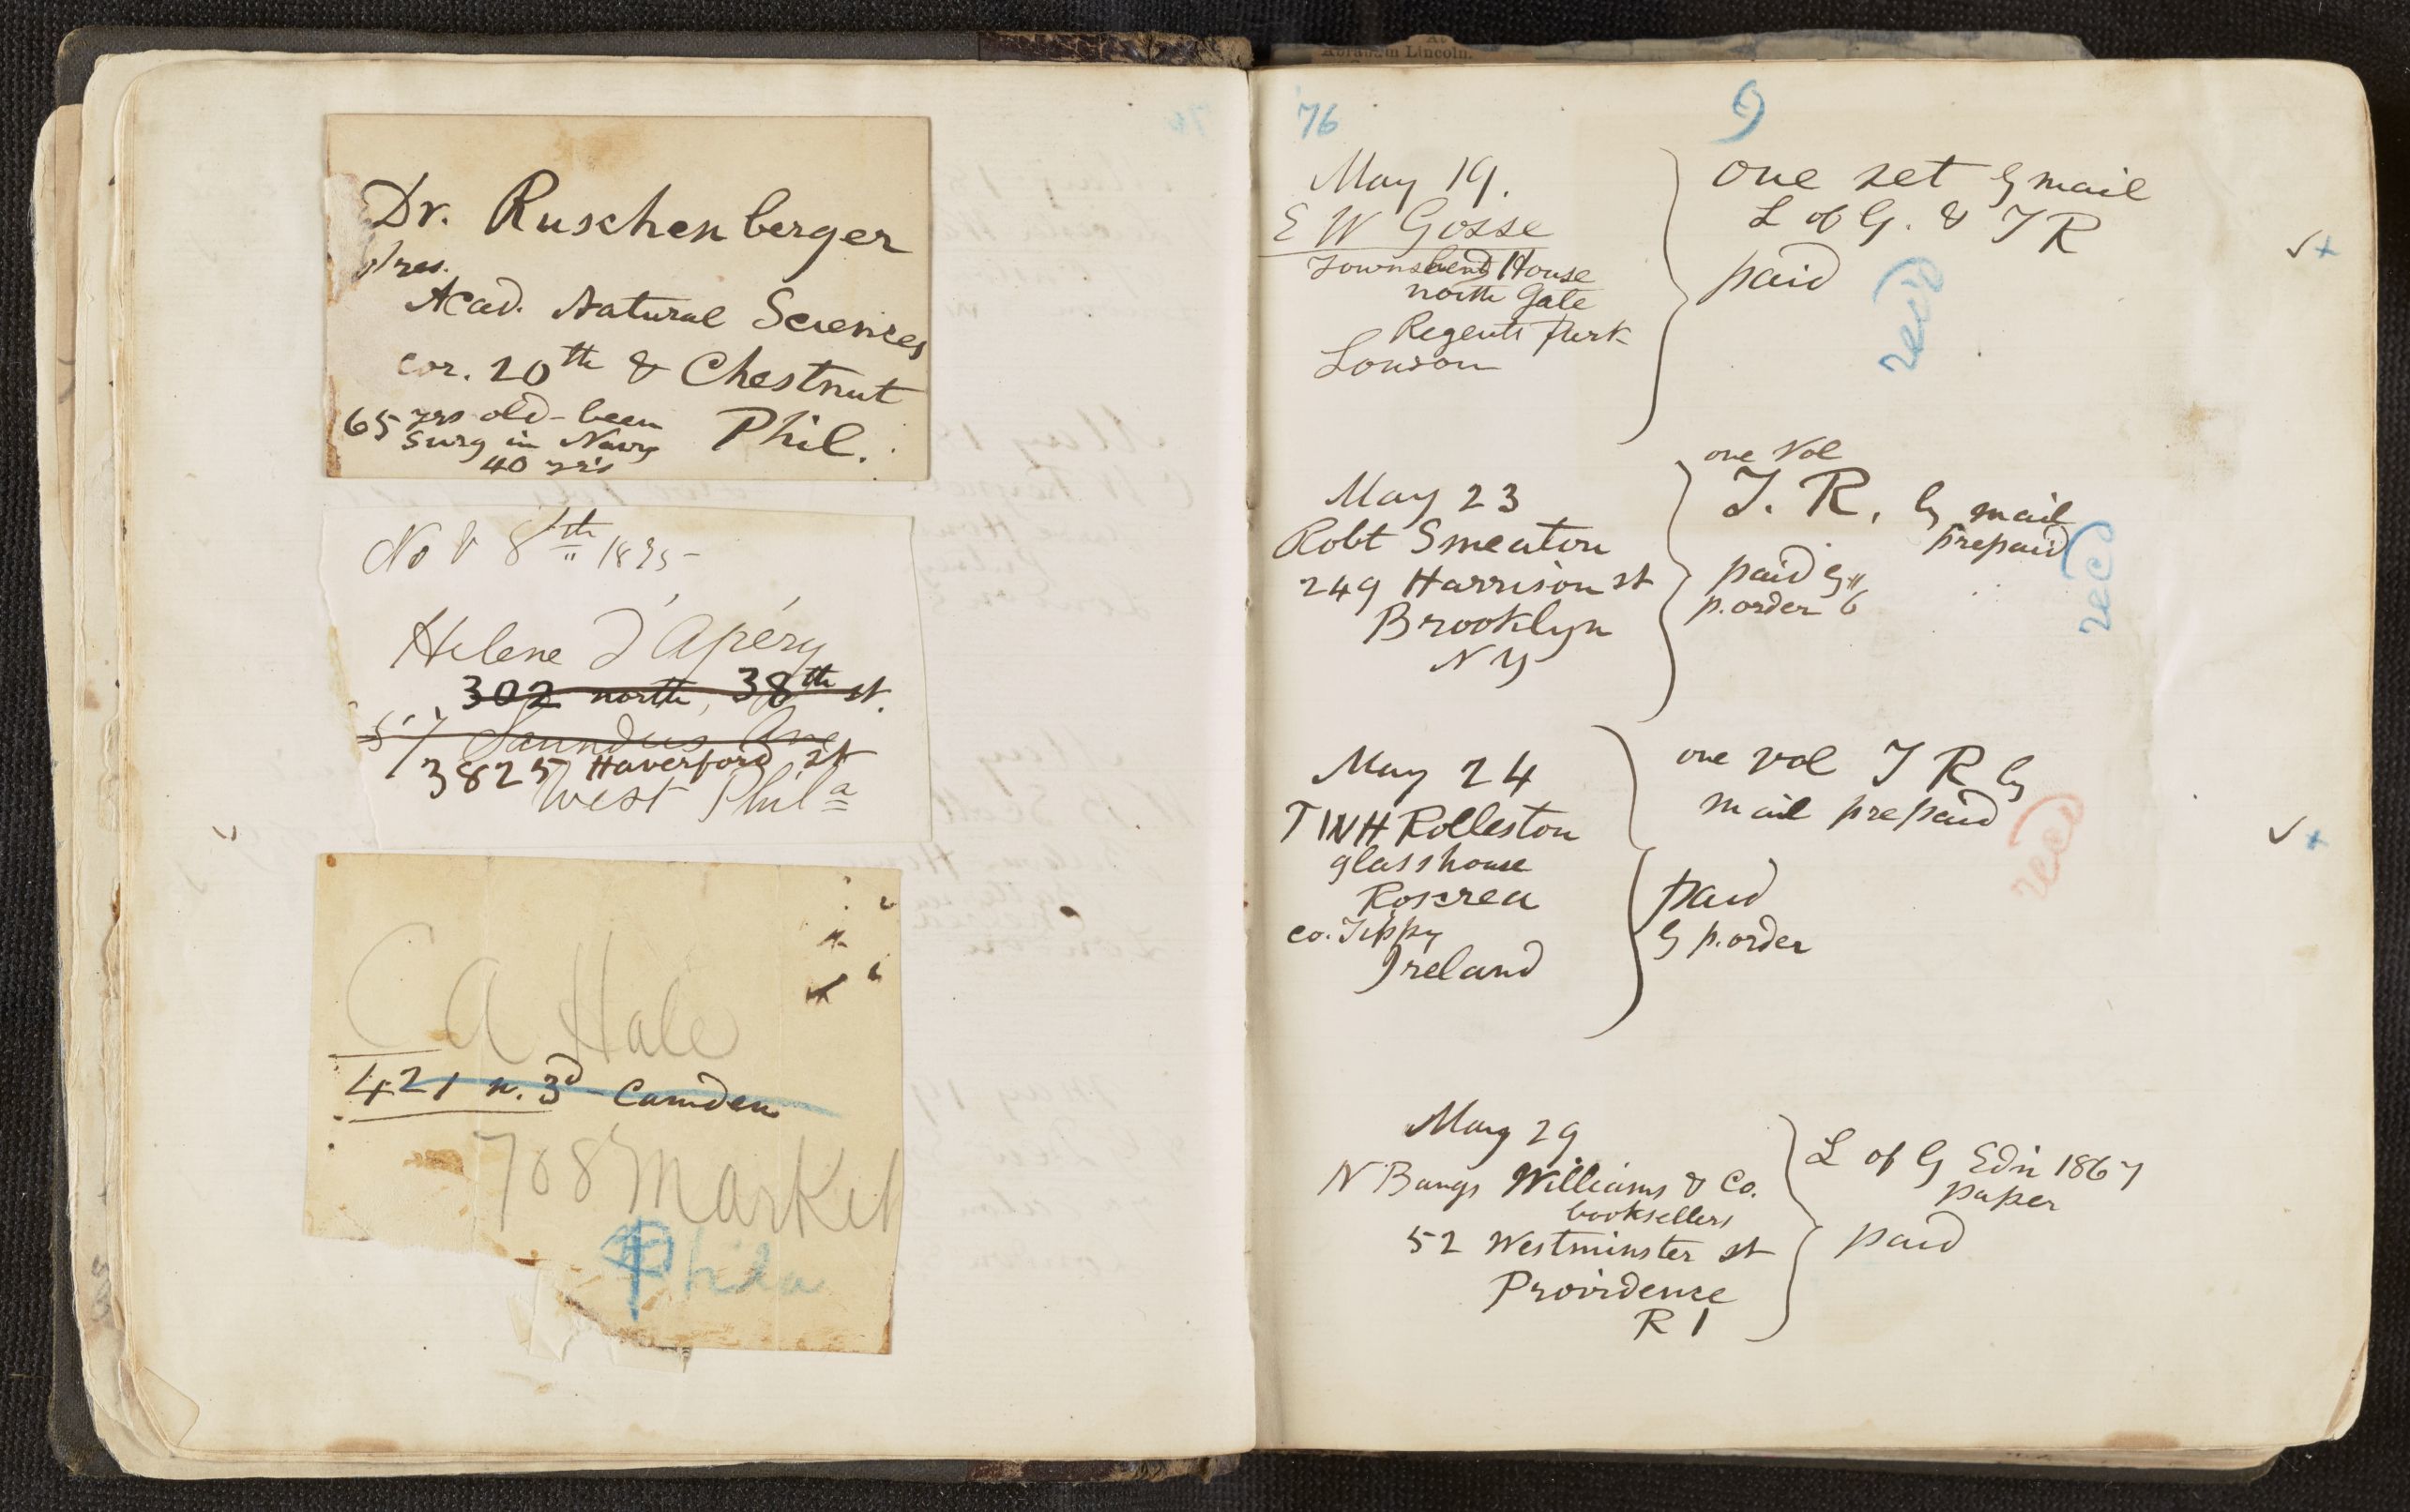 Dr. Ruschenberger
pres.
Acad. Natural Sciences
cor. 20th & Chestnut
Phil.
65 yrs old - been
surg in Navy
40 yr's
Nov 8th 1875
Helene d'Apéry
302 north, 38th st.
Saunders Ave
3825 Haverford st
West Phila
C A Hale
421 n. 3d Camden
708 Market
Phila
Abraham Lincoln.
'76
9
May 19.
E W Gosse
Townshend House
north Gate
Regents Park
London
one set by mail
L of G. & T R
paid
rec'd
May 23
Robt Smeaton
249 Harrison st
Brooklyn
N Y
one Vol
T. R. by mail
prepaid
paid by
p. order
rec'd
May 24
T W H Rolleston
glasshouse
Roscrea
co. Tippy
Ireland
one vol T R by
mail prepaid
paid
by p. order
rec'd
May 29
N Bangs Williams & Co.
booksellers
52 Westminster st
Providence
R I
L of G Edn 1867
paper
paid